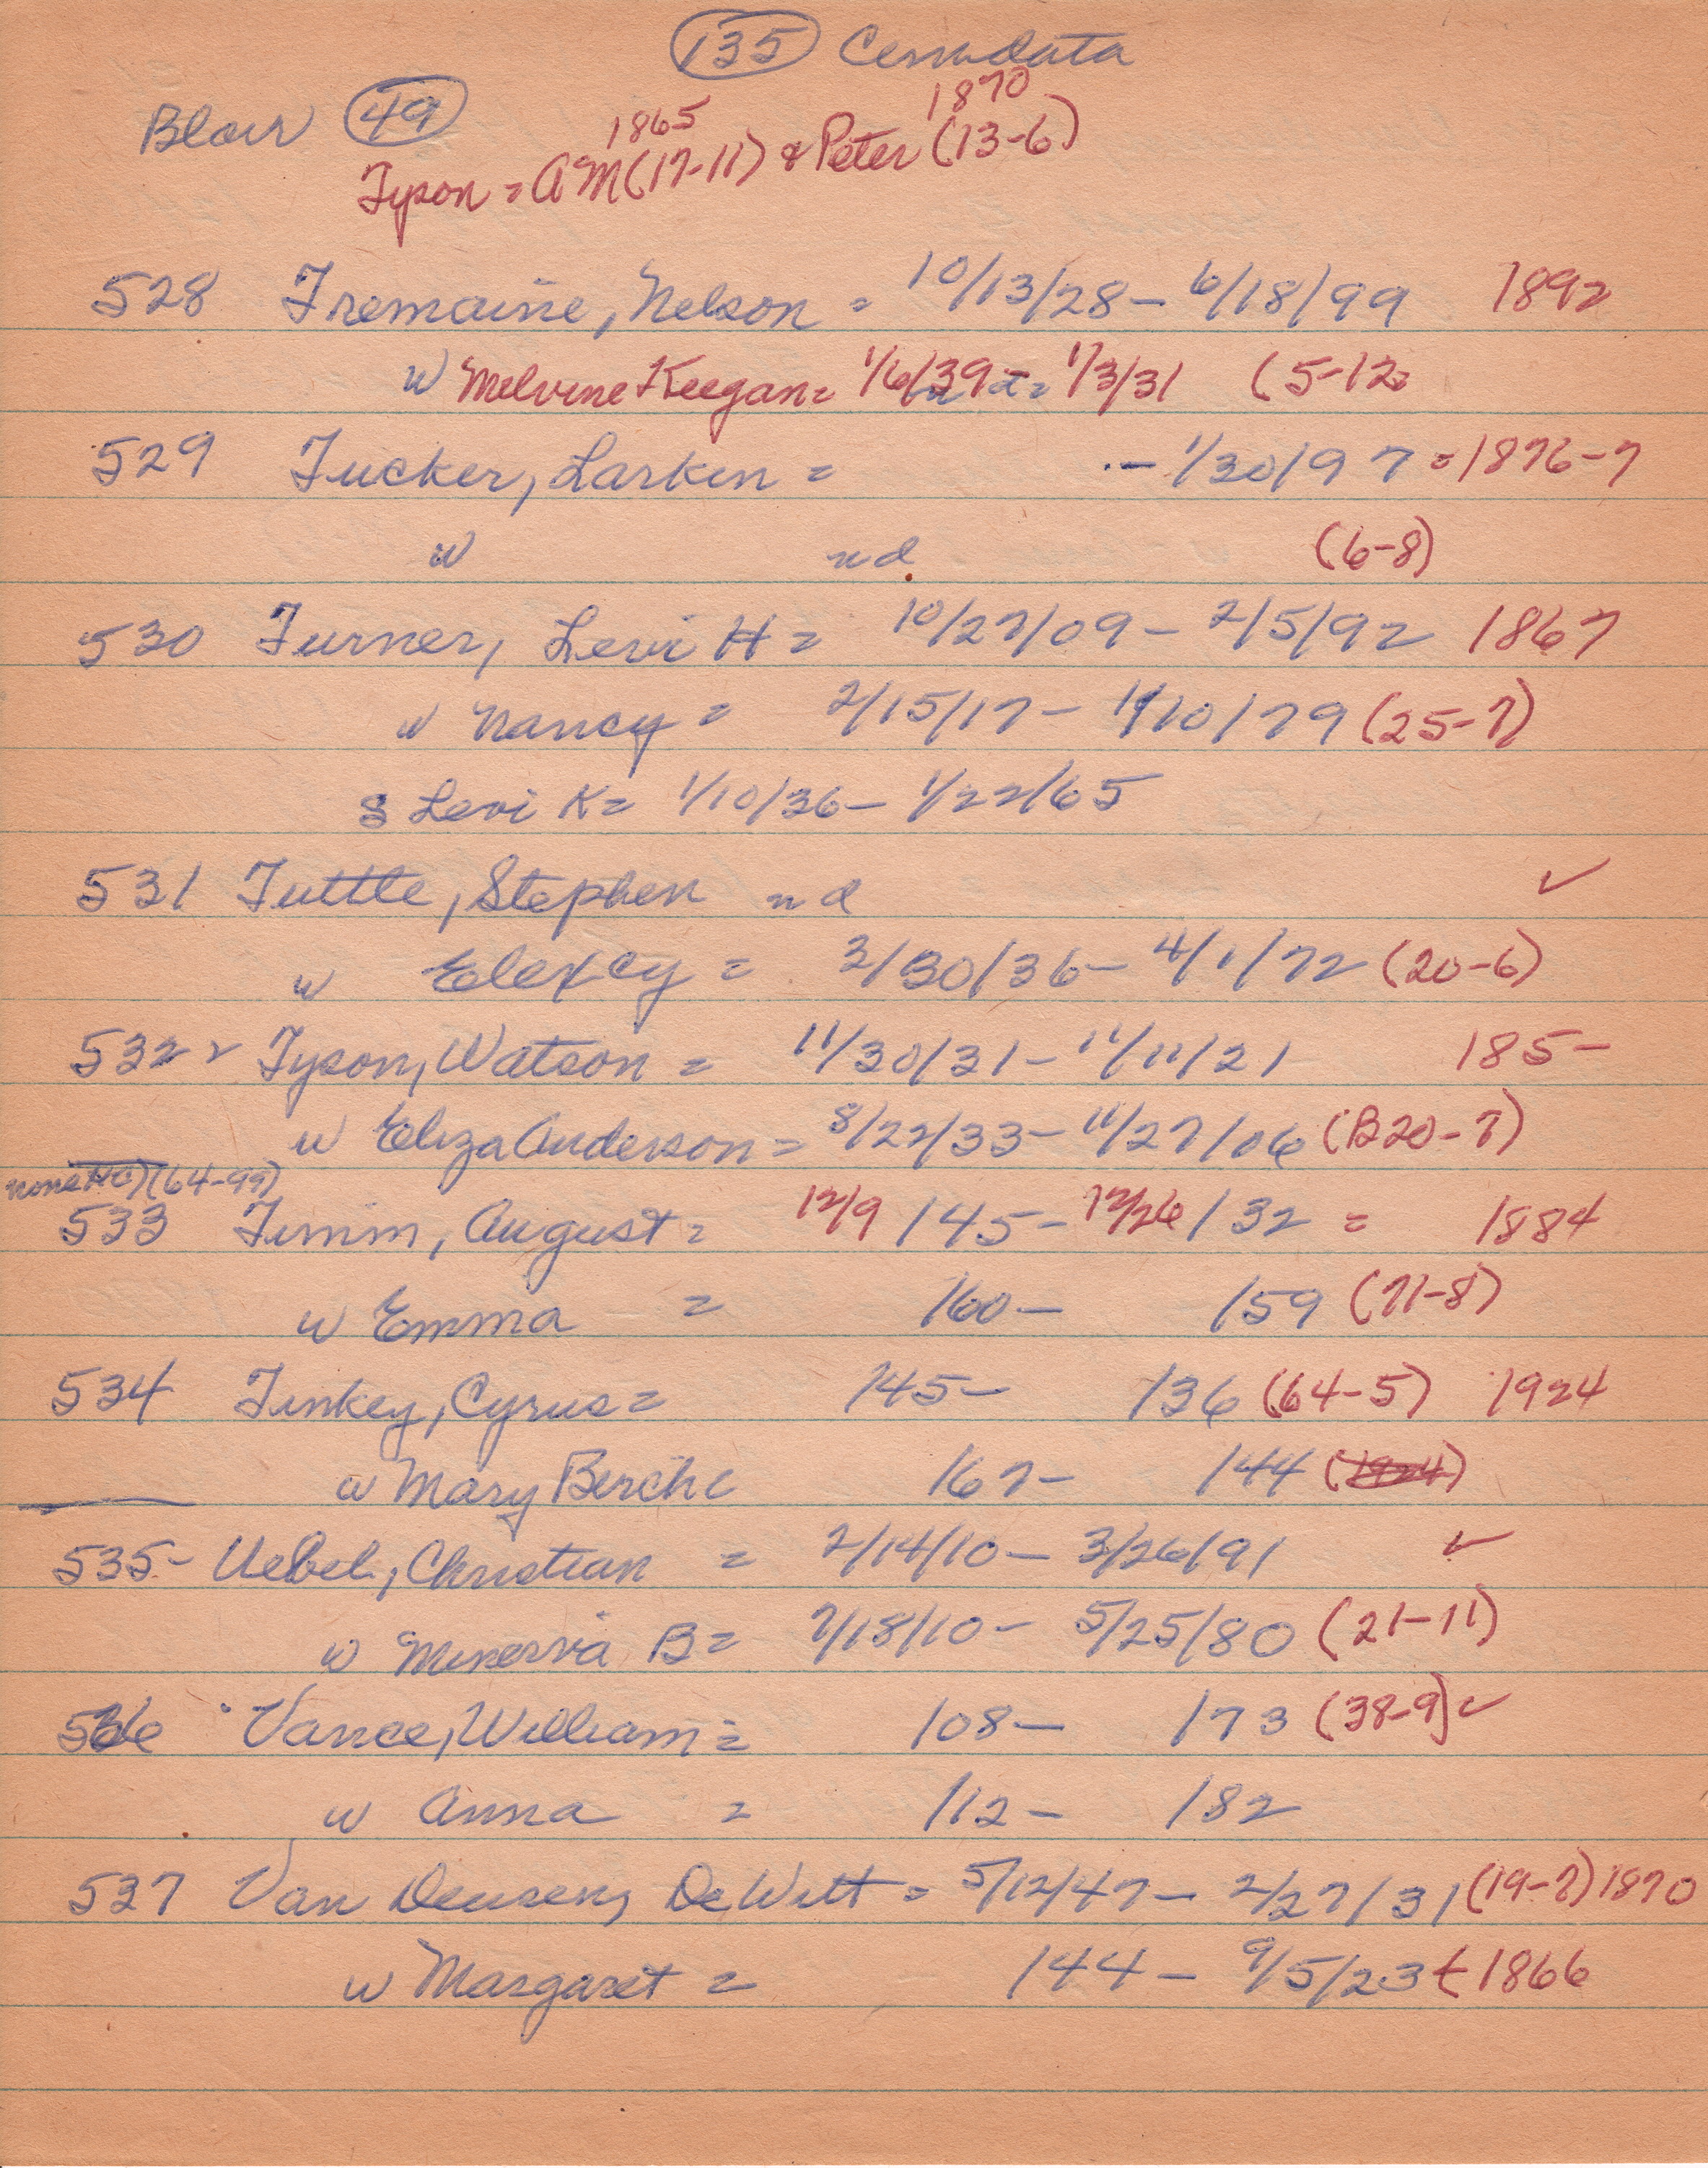 135 Cem data
Blair 49
1865 1870
Tyson = AM (17-11) & Peter (13-6)
528 Tremaine, Nelson = 10/13/28 - 6/18/99 1892
w Melvine Keegan = 1/6/39 = 1/3/31 (5-12
529 Tucker, Larkin = - 1/30/97 = 1876-7
w nd (6-8)
530 Turner, Levi H = 10/27/09 - 2/5/92 1867
w Nancy = 2/15/17 - 1/10/79 (25-7)
S Levi K = 1/10/36 - 1/22/65
531 Tuttle, Stephen nd ✓
w Elexcy = 3/30/36 - 4/1/72 (20-6)
532 Tyson, Watson = 11/30/31 - 11/11/21 185-
w Eliza Anderson = 8/22/33 - 11/27/06 (B20-7)
none HC) (64-99)
533 Timm, August = 12/9/45 - 12/26/32 = 1884
w Emma = /60 - /59 (71-8)
534 Tinkey, Cyrus = /45 - /36 (64-5) 1924
w Mary /67 - /44 (1924)
535 - Uebel, Christian = 2/14/10 - 3/26/91 ✓
w Minerva B = 7/18/10 - 5/25/80 (21-11)
536 Vance, William = /08 - /73 (38-9) ✓
w Anna = /12 - /82
537 Van Deusen, DeWitt = 5/12/47 - 2/27/31 (19-7) 1870
w Margaret = /44 - 9/5/23 1866